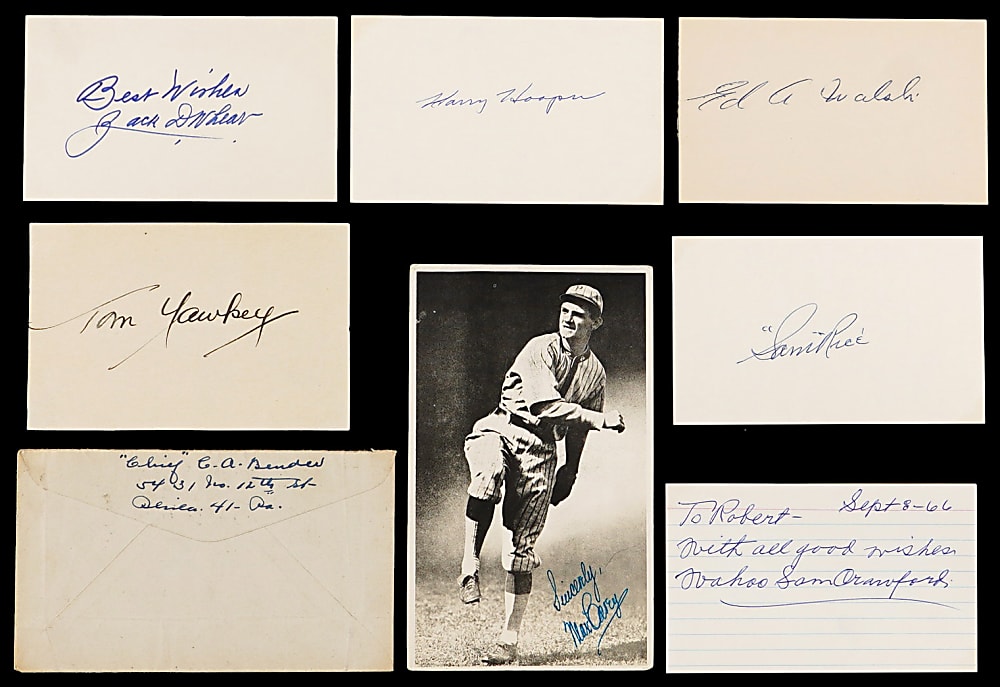 Best Wishes
Zack D Wheat
Harry Hooper
Ed A Walsh
Tom Yawkey
"Sam" Rice
"Chief" C. A. Bender
5431 No. 12th St
Phila. 41- Pa.
Sincerely,
Max Carey
P
Sept 8-66
To Robert-
With all good wishes
Wahoo Sam Crawford.